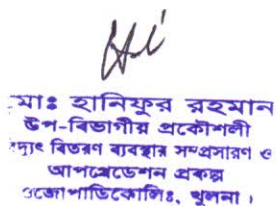 মোঃ হানিফুর রহমান
উপ-বিভাগীয় প্রকৌশলী
বিদ্যুৎ বিতরণ ব্যবস্থার সম্প্রসারণ ও
আপগ্রেডেশন প্রকল্প
ওজোপাডিকোলিঃ, খুলনা।